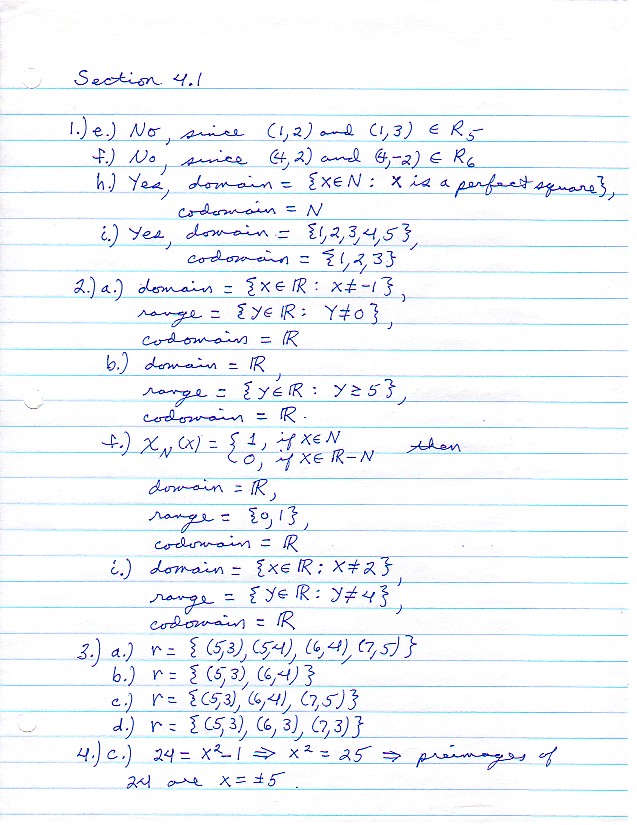 Section 4.1
1.) e.) No, since (1,2) and (1,3) ∈ R₅
f.) No, since (4,2) and (4,-2) ∈ R₆
h.) Yes, domain = {x∈N : x is a perfect square},
codomain = N
i.) Yes, domain = {1,2,3,4,5},
codomain = {1,2,3}
2.) a.) domain = {x∈ℝ : x≠-1},
range = {y∈ℝ : y≠0},
codomain = ℝ
b.) domain = ℝ,
range = {y∈ℝ : y≥5},
codomain = ℝ.
f.) χ_N(x) = { 1, if x∈N then
0, if x∈ℝ-N
domain = ℝ,
range = {0,1},
codomain = ℝ
i.) domain = {x∈ℝ : x≠2},
range = {y∈ℝ : y≠4},
codomain = ℝ
3.) a.) r = {(5,3), (5,4), (6,4), (7,5)}
b.) r = {(5,3), (6,4)}
c.) r = {(5,3), (6,4), (7,5)}
d.) r = {(5,3), (6,3), (7,3)}
4.) c.) 24 = x²-1 ⇒ x² = 25 ⇒ preimages of
24 are x = ±5.